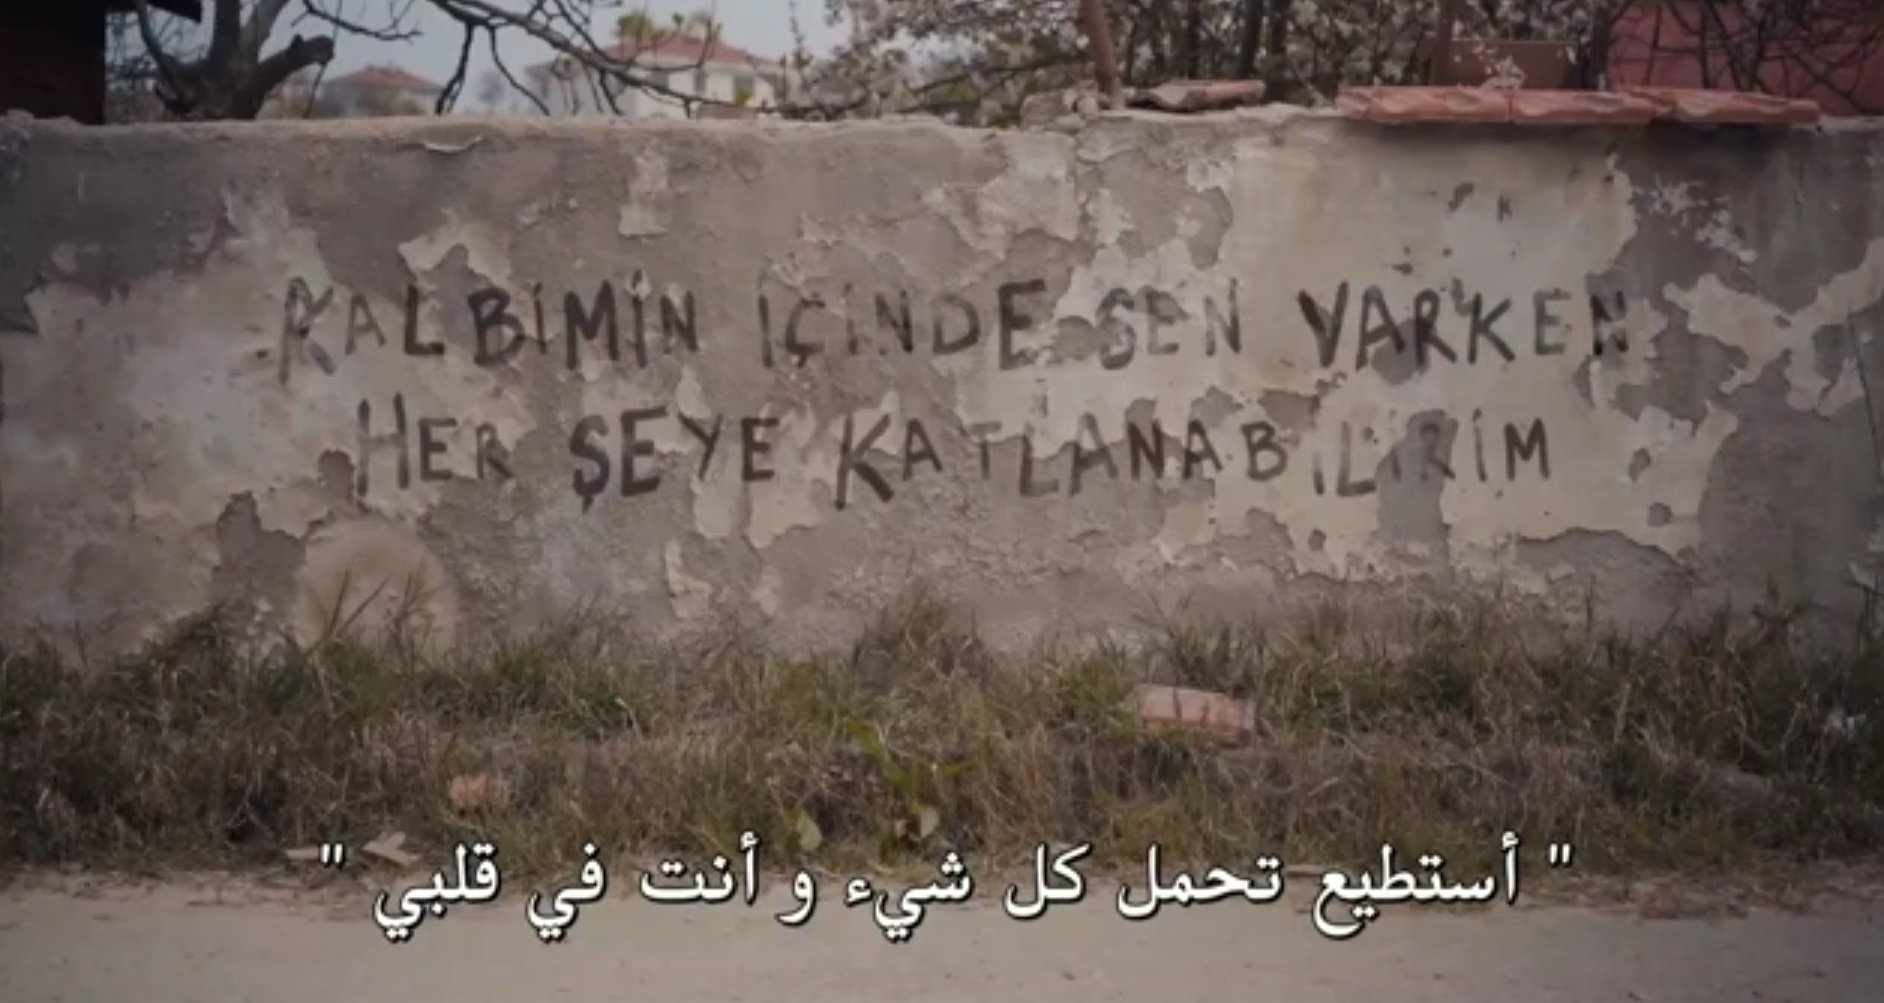 KALBİMİN İÇİNDE SEN VARKEN
HER ŞEYE KATLANABİLİRİM
" أستطيع تحمل كل شيء و أنت في قلبي "